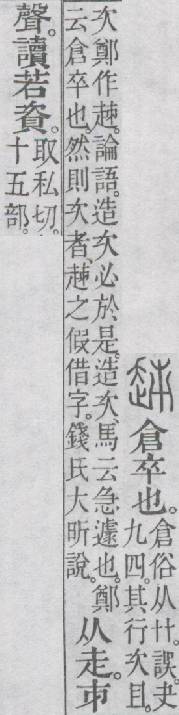 趀 倉卒也。倉俗从卄。誤。夬
九四。其行次且。
次鄭作趀。論語。造次必於是。造次、馬云急遽也。鄭
云倉卒也。然則次者、趀之假借字。錢氏大昕說。
从走。𠂔
聲。讀若資。取私切。
十五部。